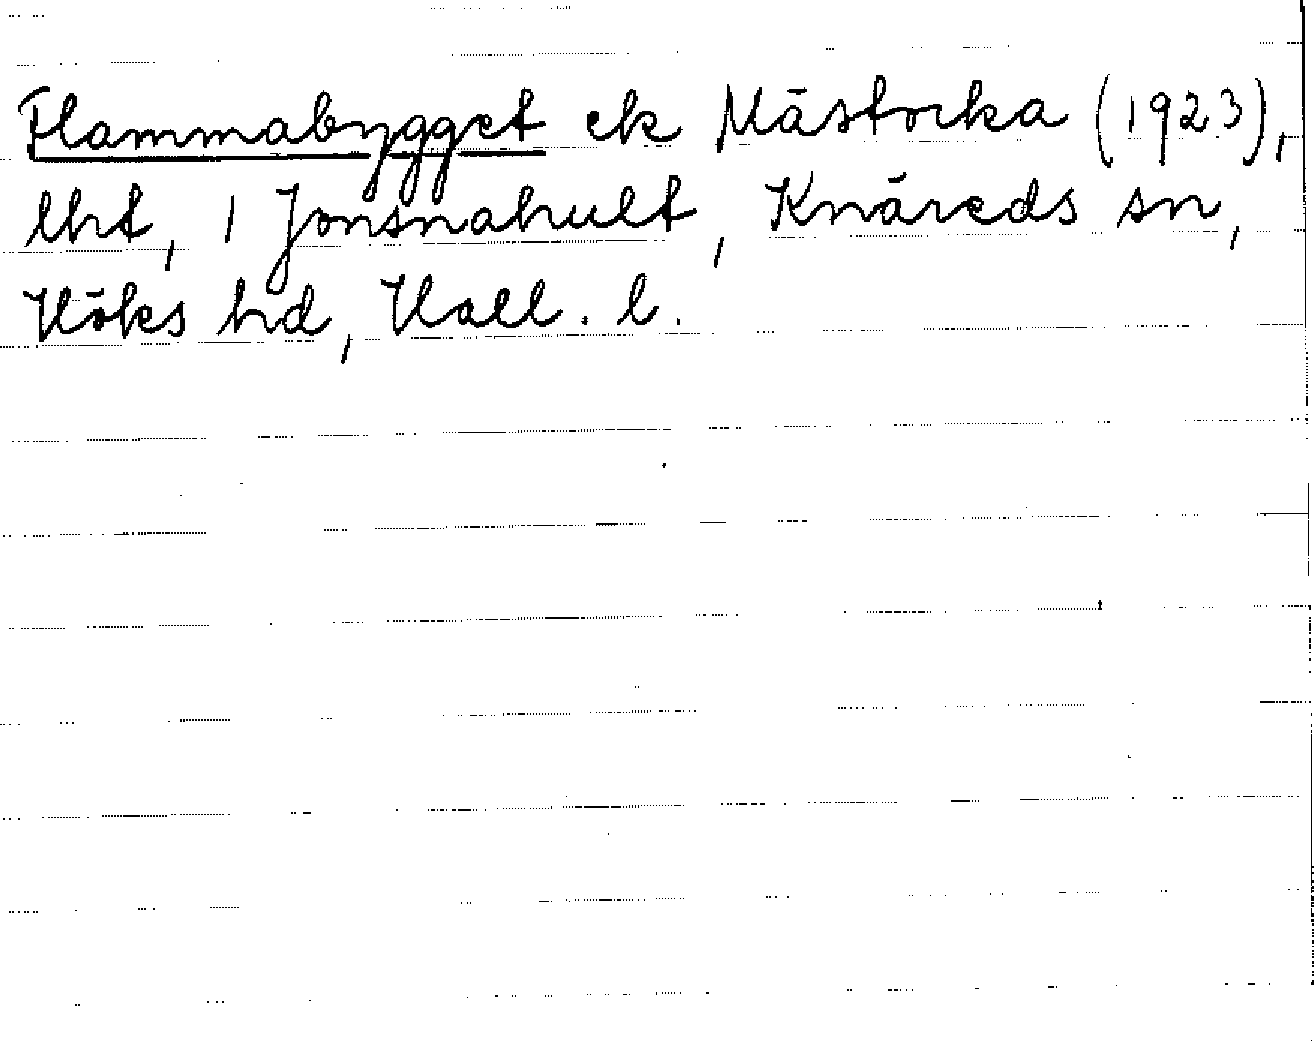 Flammabygget ek Mästocka (1923),
lht, 1 Jonsnahult, Knäreds sn,
Höks hd, Hall. l.